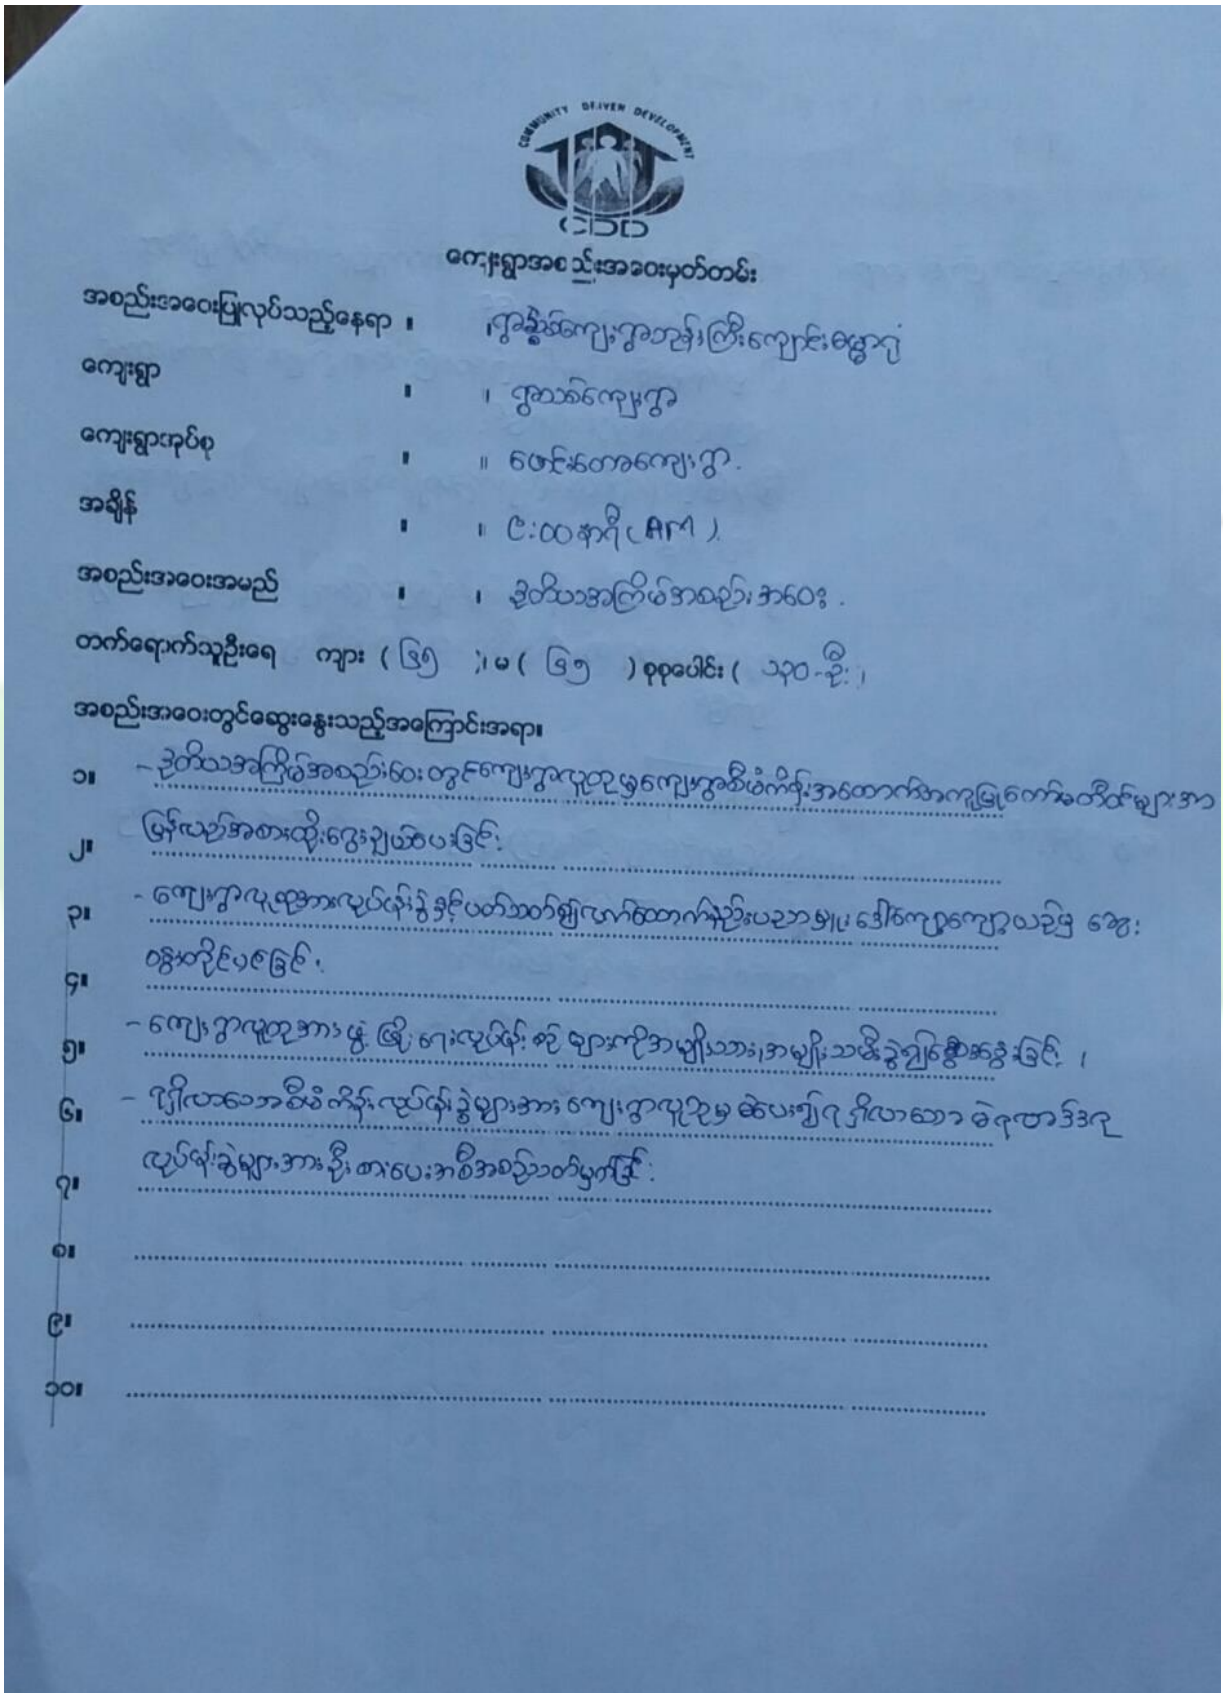 COMMUNITY DRIVEN DEVELOPMENT
CDD
ကျေးရွာအစည်းအဝေးမှတ်တမ်း
အစည်းအဝေးပြုလုပ်သည့်နေရာ ။ ရွာသစ်ကျေးရွာဘုန်းကြီးကျောင်းဓမ္မာရုံ
ကျေးရွာ ။ ။ ရွာသစ်ကျေးရွာ
ကျေးရွာအုပ်စု ။ ။ ဖောင်းတောကျေးရွာ.
အချိန် ။ ။ ၉:၀၀ နာရီ (AM).
အစည်းအဝေးအမည် ။ ။ ဒုတိယအကြိမ်အစည်းအဝေး.
တက်ရောက်သူဦးရေ ကျား ( ၆၅ )၊ မ ( ၆၅ ) စုစုပေါင်း ( ၁၃၀-ဦး )
အစည်းအဝေးတွင်ဆွေးနွေးသည့်အကြောင်းအရာ။
၁။ - ဒုတိယအကြိမ်အစည်းဝေးတွင်ကျေးရွာလူထုမှကျေးရွာစီမံကိန်းအထောက်အကူပြုကော်မတီဝင်များအာ
၂။ ပြန်လည်အစားထိုးရွေးချယ်ပေးခြင်း
၃။ - ကျေးရွာလူထုအားလုပ်ငန်းခွဲနှင့်ပတ်သတ်၍လက်ထောက်နည်းပညာမှူး ဒေါ်ကျော့ကျော့ယဉ်မှ ဆွေး
၄။ နွေးတိုင်ပင်ခြင်း
၅။ - ကျေးရွာလူထုအား ဖွံ့ဖြိုးရေးလုပ်ငန်းစဉ်များကိုအမျိုးသား၊အမျိုးသမီးခွဲ၍ဆွေးနွေးခြင်း
၆။ - ရရှိလာသောစီမံကိန်းလုပ်ငန်းခွဲများအား ကျေးရွာလူထုမှ မဲပေး၍ရရှိလာသော မဲရလဒ်အရ
၇။ လုပ်ငန်းခွဲများအားဦးစားပေးအစီအစဉ်သတ်မှတ်ခြင်း
၈။
၉။
၁၀။